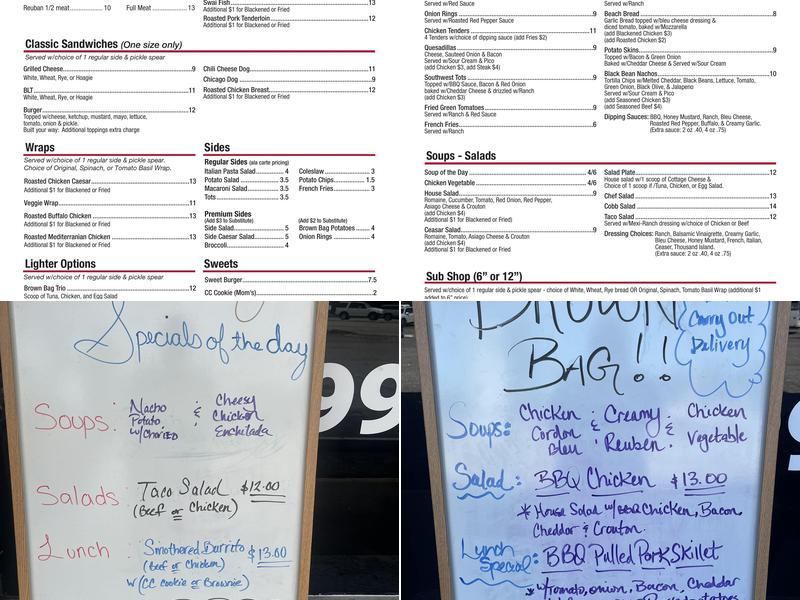 Reuban 1/2 meat 10 Full Meat 13
Swai Fish 13
Additional $1 for Blackened or Fried
Roasted Pork Tenderloin 12
Additional $1 for Blackened or Fried
Classic Sandwiches (One size only)
Served w/choice of 1 regular side & pickle spear
Grilled Cheese 9
White, Wheat, Rye, or Hoagie
BLT 11
White, Wheat, Rye, or Hoagie
Burger 12
Topped w/cheese, ketchup, mustard, mayo, lettuce,
tomato, onion & pickle.
Built your way: Additional toppings extra charge
Chili Cheese Dog 11
Chicago Dog 9
Roasted Chicken Breast 12
Additional $1 for Blackened or Fried
Wraps
Served w/choice of 1 regular side & pickle spear.
Choice of Original, Spinach, or Tomato Basil Wrap.
Roasted Chicken Caesar 13
Additional $1 for Blackened or Fried
Veggie Wrap 11
Roasted Buffalo Chicken 13
Additional $1 for Blackened or Fried
Roasted Mediterranian Chicken 13
Additional $1 for Blackened or Fried
Sides
Regular Sides (ala carte pricing)
Italian Pasta Salad 4
Potato Salad 3.5
Macaroni Salad 3.5
Tots 3.5
Coleslaw 3
Potato Chips 1.5
French Fries 3
Premium Sides
(Add $3 to Substitute)
Side Salad 5
Side Caesar Salad 5
Broccoli 4
(Add $2 to Substitute)
Brown Bag Potatoes 4
Onion Rings 4
Lighter Options
Served w/choice of 1 regular side & pickle spear
Brown Bag Trio 12
Scoop of Tuna, Chicken, and Egg Salad
Sweets
Sweet Burger 7.5
CC Cookie (Mom's) 2
Served w/Red Sauce
Onion Rings 9
Served w/Roasted Red Pepper Sauce
Chicken Tenders 11
4 Tenders w/choice of dipping sauce (add Fries $2)
Quesadillas 9
Cheese, Sauteed Onion & Bacon
Served w/Sour Cream & Pico
(add Chicken $3, add Steak $4)
Southwest Tots 9
Topped w/BBQ Sauce, Bacon & Red Onion
baked w/Cheddar Cheese & drizzled w/Ranch
(add Chicken $3)
Fried Green Tomatoes 9
Served w/Ranch & Red Sauce
French Fries 6
Served w/Ranch
Served w/Ranch
Beach Bread 8
Garlic Bread topped w/bleu cheese dressing &
diced tomato, baked w/Mozzarella
(add Blackened Chicken $3)
(add Roasted Chicken $2)
Potato Skins 9
Topped w/Bacon & Green Onion
Baked w/Cheddar Cheese & Served w/Sour Cream
Black Bean Nachos 10
Tortilla Chips w/Melted Cheddar, Black Beans, Lettuce, Tomato,
Green Onion, Black Olive, & Jalapeno
Served w/Sour Cream & Pico
(add Seasoned Chicken $3)
(add Seasoned Beef $4)
Dipping Sauces: BBQ, Honey Mustard, Ranch, Bleu Cheese,
Roasted Red Pepper, Buffalo, & Creamy Garlic.
(Extra sauce: 2 oz .40, 4 oz .75)
Soups - Salads
Soup of the Day 4/6
Chicken Vegetable 4/6
House Salad 9
Romaine, Cucumber, Tomato, Red Onion, Red Pepper,
Asiago Cheese & Crouton
(add Chicken $4)
Additional $1 for Blackened or Fried)
Ceasar Salad 9
Romaine, Tomato, Asiago Cheese & Crouton
(add Chicken $4)
Additional $1 for Blackened or Fried
Salad Plate 12
House salad w/1 scoop of Cottage Cheese &
Choice of 1 scoop if /Tuna, Chicken, or Egg Salad.
Chef Salad 13
Cobb Salad 14
Taco Salad 12
Served w/Mexi-Ranch dressing w/choice of Chicken or Beef
Dressing Choices: Ranch, Balsamic Vinaigrette, Creamy Garlic,
Bleu Cheese, Honey Mustard, French, Italian,
Ceaser, Thousand Island.
(Extra sauce: 2 oz .40, 4 oz .75)
Sub Shop (6" or 12")
Served w/choice of 1 regular side & pickle spear - choice of White, Wheat, Rye bread OR Original, Spinach, Tomato Basil Wrap (additional $1
added to 6" price)
Specials of the day
Soups: Nacho Potato w/Chorizo & Cheesy Chicken Enchilada
Salads: Taco Salad $12.00
(Beef or Chicken)
Lunch Smothered Burrito $13.00
(Beef or Chicken)
w/(CC cookie or Brownie)
99
BROWN
BAG!!
Carry Out
Delivery
Soups: Chicken Cordon Bleu & Creamy Reuben & Chicken Vegetable
Salad: BBQ Chicken $13.00
* House Salad w/BBQ Chicken, Bacon,
Cheddar & Crouton.
Lunch Special: BBQ Pulled Pork Skillet
* w/tomato, onion, Bacon, Cheddar